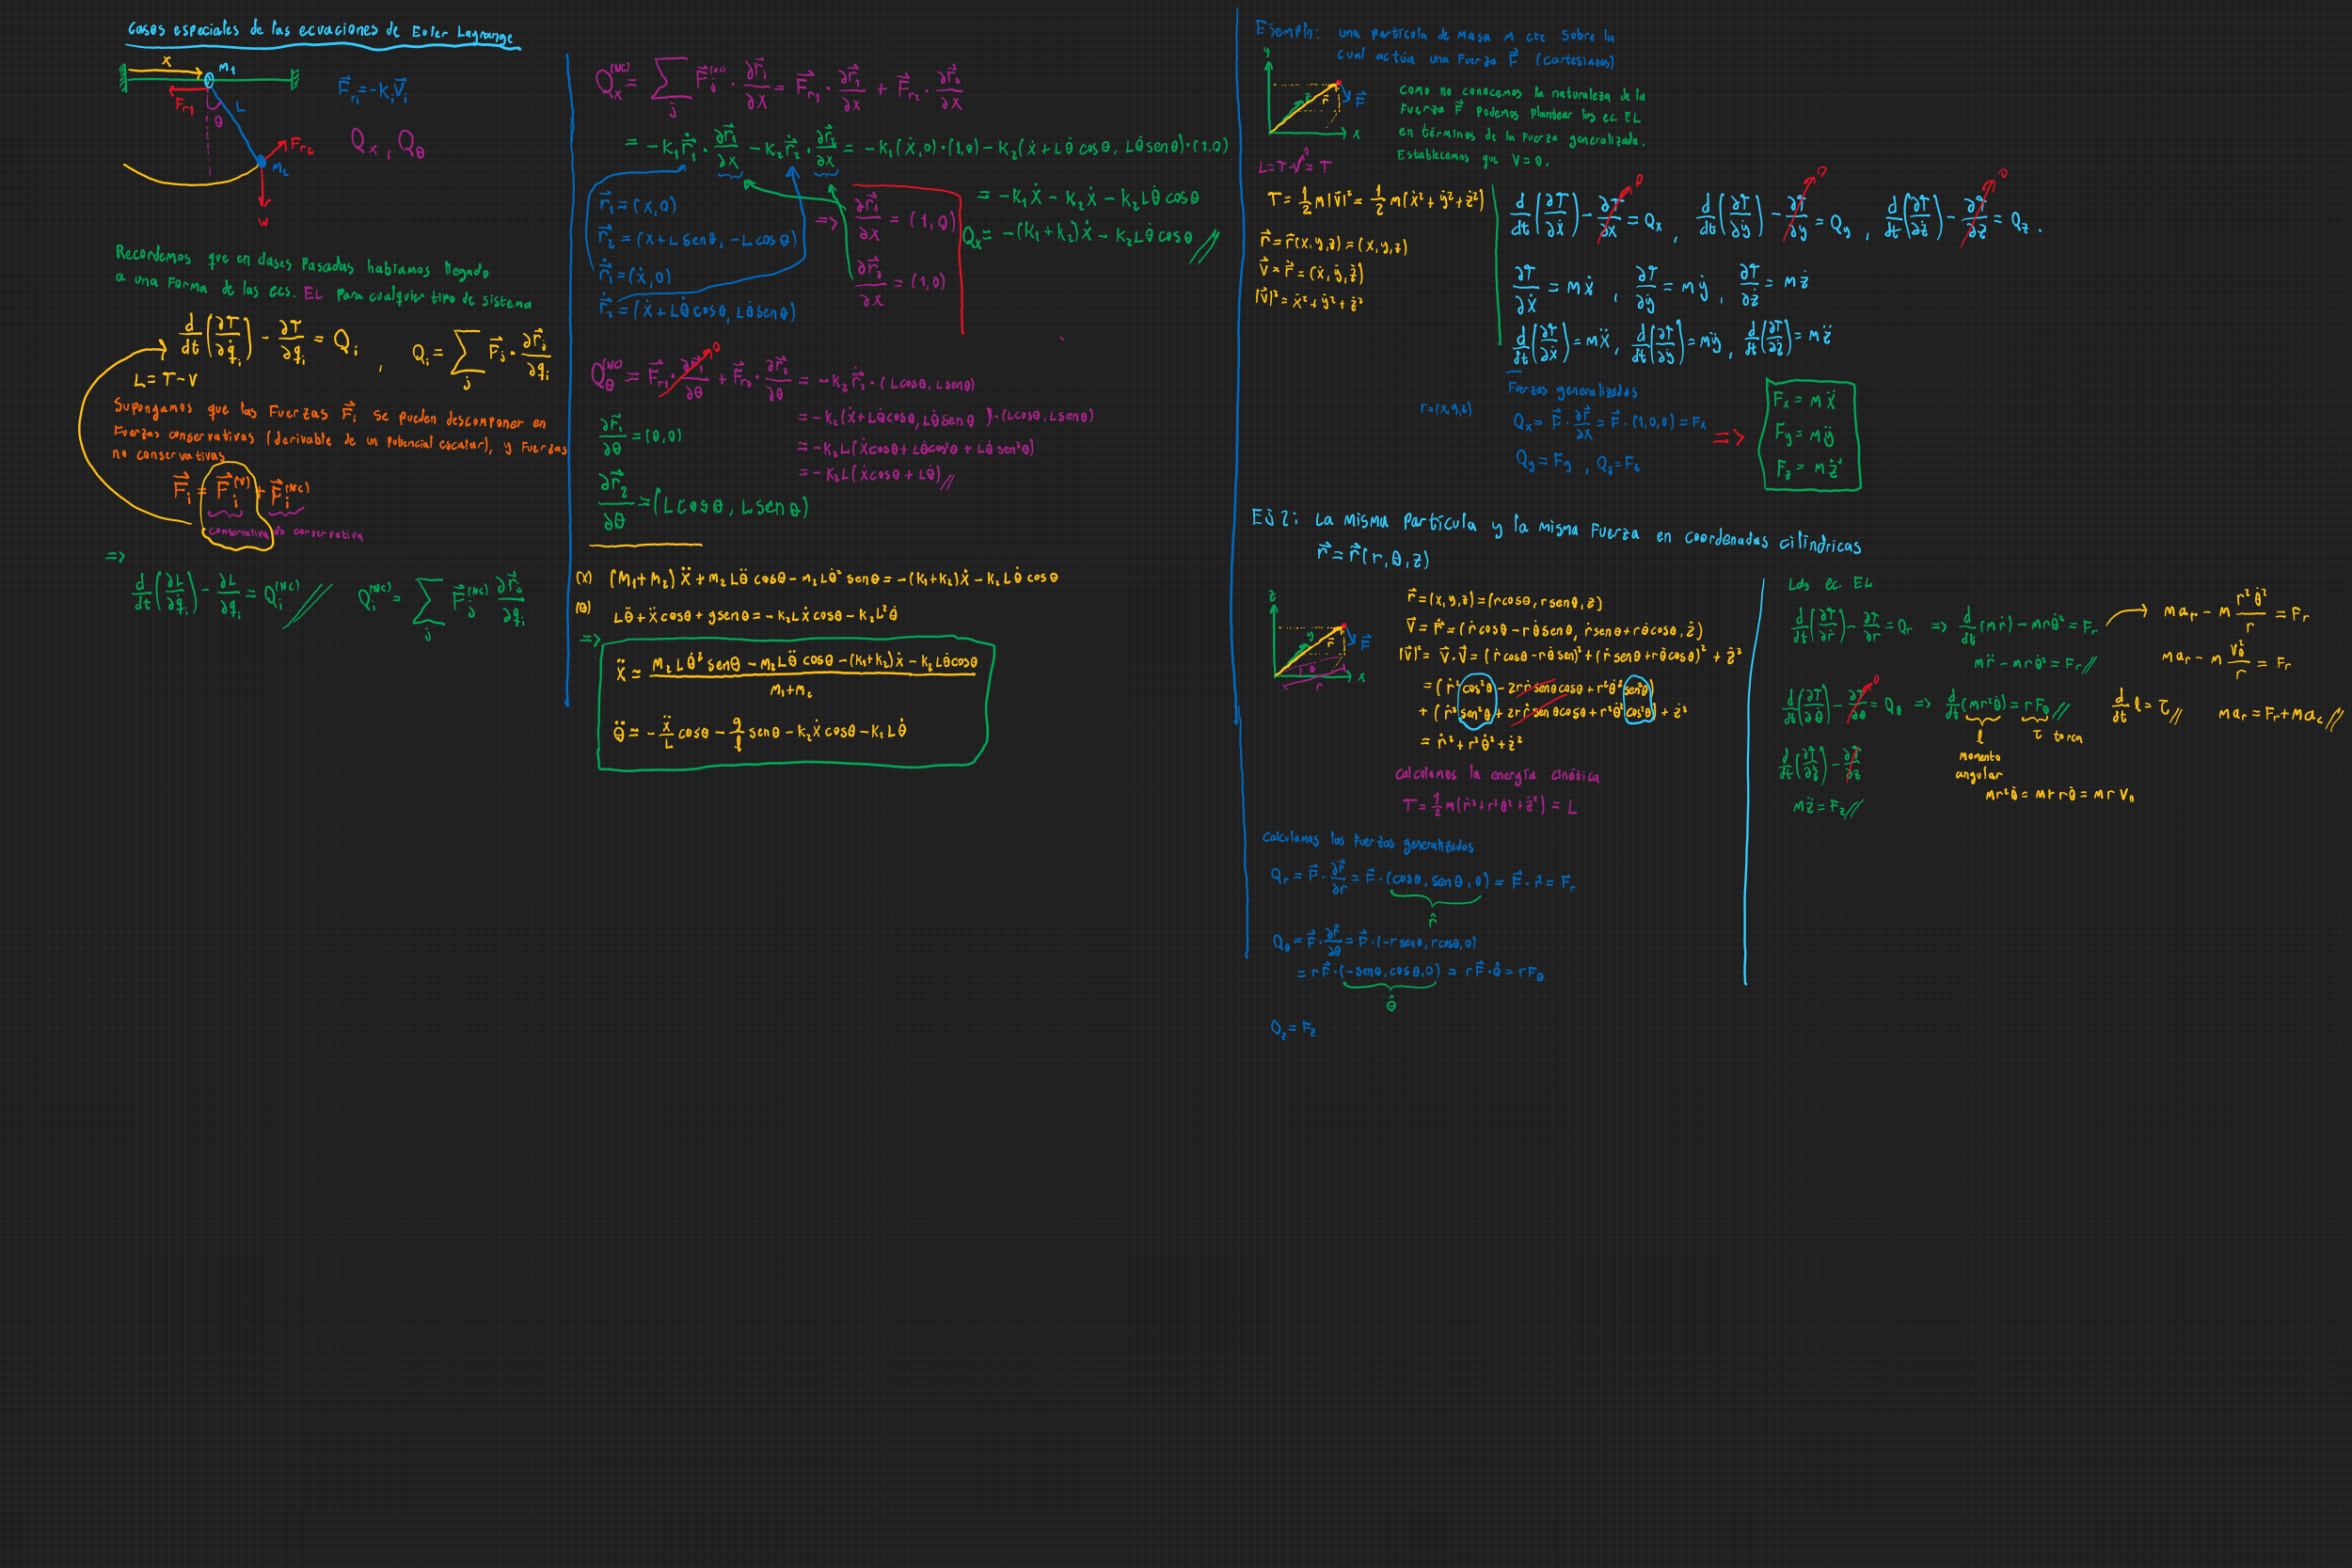 Casos especiales de las ecuaciones de Euler Lagrange
x M₁
F⃗rᵢ = -kᵢ V⃗ᵢ
Fr₁ L
θ
Qx , Qθ
Fr₂
M₂
W
Recordemos que en clases pasadas habiamos llegado
a una forma de las ecs. EL para cualquier tipo de sistema
d/dt(∂T/∂q̇ᵢ) - ∂T/∂qᵢ = Qᵢ , Qᵢ = Σⱼ F⃗ⱼ · ∂r⃗ⱼ/∂qᵢ
L = T - V
Supongamos que las Fuerzas F⃗ᵢ se pueden descomponer en
Fuerzas conservativas (derivable de un potencial escalar), y Fuerzas
no conservativas
F⃗ᵢ = F⃗ᵢ^(V) + F⃗ᵢ^(NC)
conservativa no conservativa
=>
d/dt(∂L/∂q̇ᵢ) - ∂L/∂qᵢ = Qᵢ^(NC) // Qᵢ^(NC) = Σⱼ F⃗ⱼ^(NC) ∂r⃗ⱼ/∂qᵢ
Qx^(NC) = Σⱼ F⃗ⱼ^(NC) · ∂r⃗ⱼ/∂x = F⃗r₁ · ∂r⃗₁/∂x + F⃗r₂ · ∂r⃗₂/∂x
= -k₁ṙ⃗₁ · ∂r⃗₁/∂x - k₂ṙ⃗₂ · ∂r⃗₂/∂x = -k₁(ẋ,0)·(1,0) - k₂(ẋ + Lθ̇ cosθ, Lθ̇ senθ)·(1,0)
r⃗₁ = (x,0)
r⃗₂ = (x + L senθ, -L cosθ)
ṙ⃗₁ = (ẋ,0)
ṙ⃗₂ = (ẋ + Lθ̇ cosθ, Lθ̇ senθ)
=> ∂r⃗₁/∂x = (1,0)
∂r⃗₂/∂x = (1,0)
= -k₁ẋ - k₂ẋ - k₂Lθ̇ cosθ
Qx = -(k₁+k₂)ẋ - k₂Lθ̇ cosθ //
Qθ^(NC) = F⃗r₁ · ∂r⃗₁/∂θ 0 + F⃗r₂ · ∂r⃗₂/∂θ = -k₂ṙ⃗₂ · (Lcosθ, Lsenθ)
= -k₂(ẋ + Lθ̇cosθ, Lθ̇senθ)·(Lcosθ, Lsenθ)
∂r⃗₁/∂θ = (0,0)
= -k₂L(ẋcosθ + Lθ̇cos²θ + Lθ̇ sen²θ)
= -k₂L(ẋcosθ + Lθ̇) //
∂r⃗₂/∂θ = (Lcosθ, Lsenθ)
(x) (M₁+M₂)ẍ + m₂Lθ̈ cosθ - m₂Lθ̇² senθ = -(k₁+k₂)ẋ - k₂Lθ̇ cosθ
(θ) Lθ̈ + ẍcosθ + gsenθ = -k₂Lẋcosθ - k₂L²θ̇
=>
ẍ = (M₂Lθ̇² senθ - M₂Lθ̈ cosθ - (k₁+k₂)ẋ - k₂Lθ̇cosθ)/(M₁+M₂)
θ̈ = -ẍ/L cosθ - g/l senθ - k₂ẋcosθ - k₂Lθ̇
Ejemplo: una partícula de masa m cte sobre la
cual actúa una Fuerza F⃗ (cartesianas)
y z r⃗ F⃗ x
Como no conocemos la naturaleza de la
Fuerza F⃗ podemos plantear las ec. EL
en términos de la Fuerza generalizada.
Establecemos que V=0.
L = T - V 0 = T
T = ½m|v⃗|² = ½m(ẋ² + ẏ² + ż²)
r⃗ = r⃗(x,y,z) = (x,y,z)
V⃗ = ṙ⃗ = (ẋ,ẏ,ż)
|V⃗|² = ẋ² + ẏ² + ż²
d/dt(∂T/∂ẋ) - ∂T/∂x 0 = Qx , d/dt(∂T/∂ẏ) - ∂T/∂y 0 = Qy , d/dt(∂T/∂ż) - ∂T/∂z 0 = Qz .
∂T/∂ẋ = mẋ , ∂T/∂ẏ = mẏ , ∂T/∂ż = mż
d/dt(∂T/∂ẋ) = mẍ, d/dt(∂T/∂ẏ) = mÿ, d/dt(∂T/∂ż) = mz̈
Fuerzas generalizadas
r=(x,y,z)
Qx = F⃗ · ∂r⃗/∂x = F⃗·(1,0,0) = Fx
Qy = Fy , Qz = Fz
=>
Fx = mẍ
Fy = mÿ
Fz = mz̈
Ej 2: La misma partícula y la misma Fuerza en coordenadas cilíndricas
r⃗ = r⃗(r,θ,z)
z y r⃗ F⃗ θ r x
r⃗ = (x,y,z) = (rcosθ, rsenθ, z)
V⃗ = ṙ⃗ = (ṙcosθ - rθ̇senθ, ṙsenθ + rθ̇cosθ, ż)
|V⃗|² = V⃗·V⃗ = (ṙcosθ - rθ̇sen)² + (ṙsenθ + rθ̇cosθ)² + ż²
= (ṙ²cos²θ - 2rṙsenθcosθ + r²θ̇²sen²θ)
+ (ṙ²sen²θ + 2rṙsenθcosθ + r²θ̇²cos²θ) + ż²
= ṙ² + r²θ̇² + ż²
Calculamos la energía cinética
T = ½m(ṙ² + r²θ̇² + ż²) = L
Calculamos las Fuerzas generalizadas
Qr = F⃗·∂r⃗/∂r = F⃗·(cosθ, senθ, 0) = F⃗·r̂ = Fr
r̂
Qθ = F⃗·∂r⃗/∂θ = F⃗·(-rsenθ, rcosθ, 0)
= rF⃗·(-senθ, cosθ, 0) = rF⃗·θ̂ = rFθ
θ̂
Qz = Fz
Las ec. EL
d/dt(∂T/∂ṙ) - ∂T/∂r = Qr => d/dt(mṙ) - mrθ̇² = Fr
mr̈ - mrθ̇² = Fr //
d/dt(∂T/∂θ̇) - ∂T/∂θ 0 = Qθ => d/dt(mr²θ̇) = rFθ //
l τ torca
momento
angular
d/dt(∂T/∂ż) - ∂T/∂z
mz̈ = Fz //
mr²θ̇ = mr rθ̇ = mr Vθ
d/dt l = τ //
mar - m r²θ̇²/r = Fr
mar - m Vθ²/r = Fr
mar = Fr + mac //